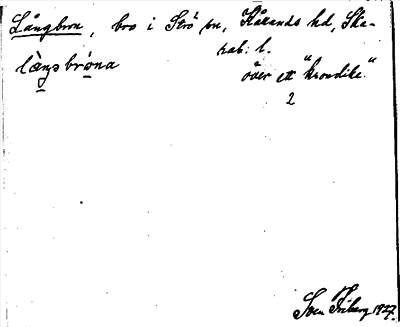 Långbron, bro i Strö sn, Kållands hd, Ska-
rab. l.
långsbrọ̀na
över ett "krondike."
2
Sven Friberg 1927.